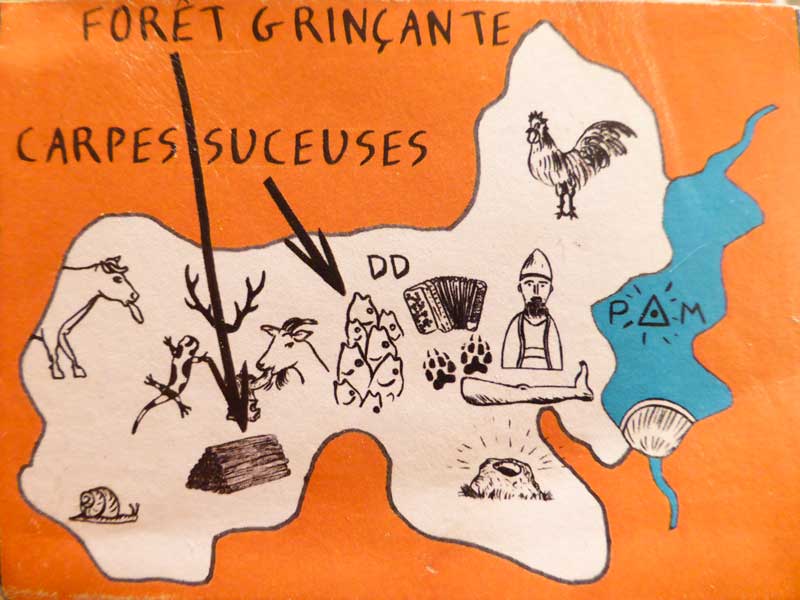 FORÊT GRINÇANTE
CARPES SUCEUSES
DD
P Δ M